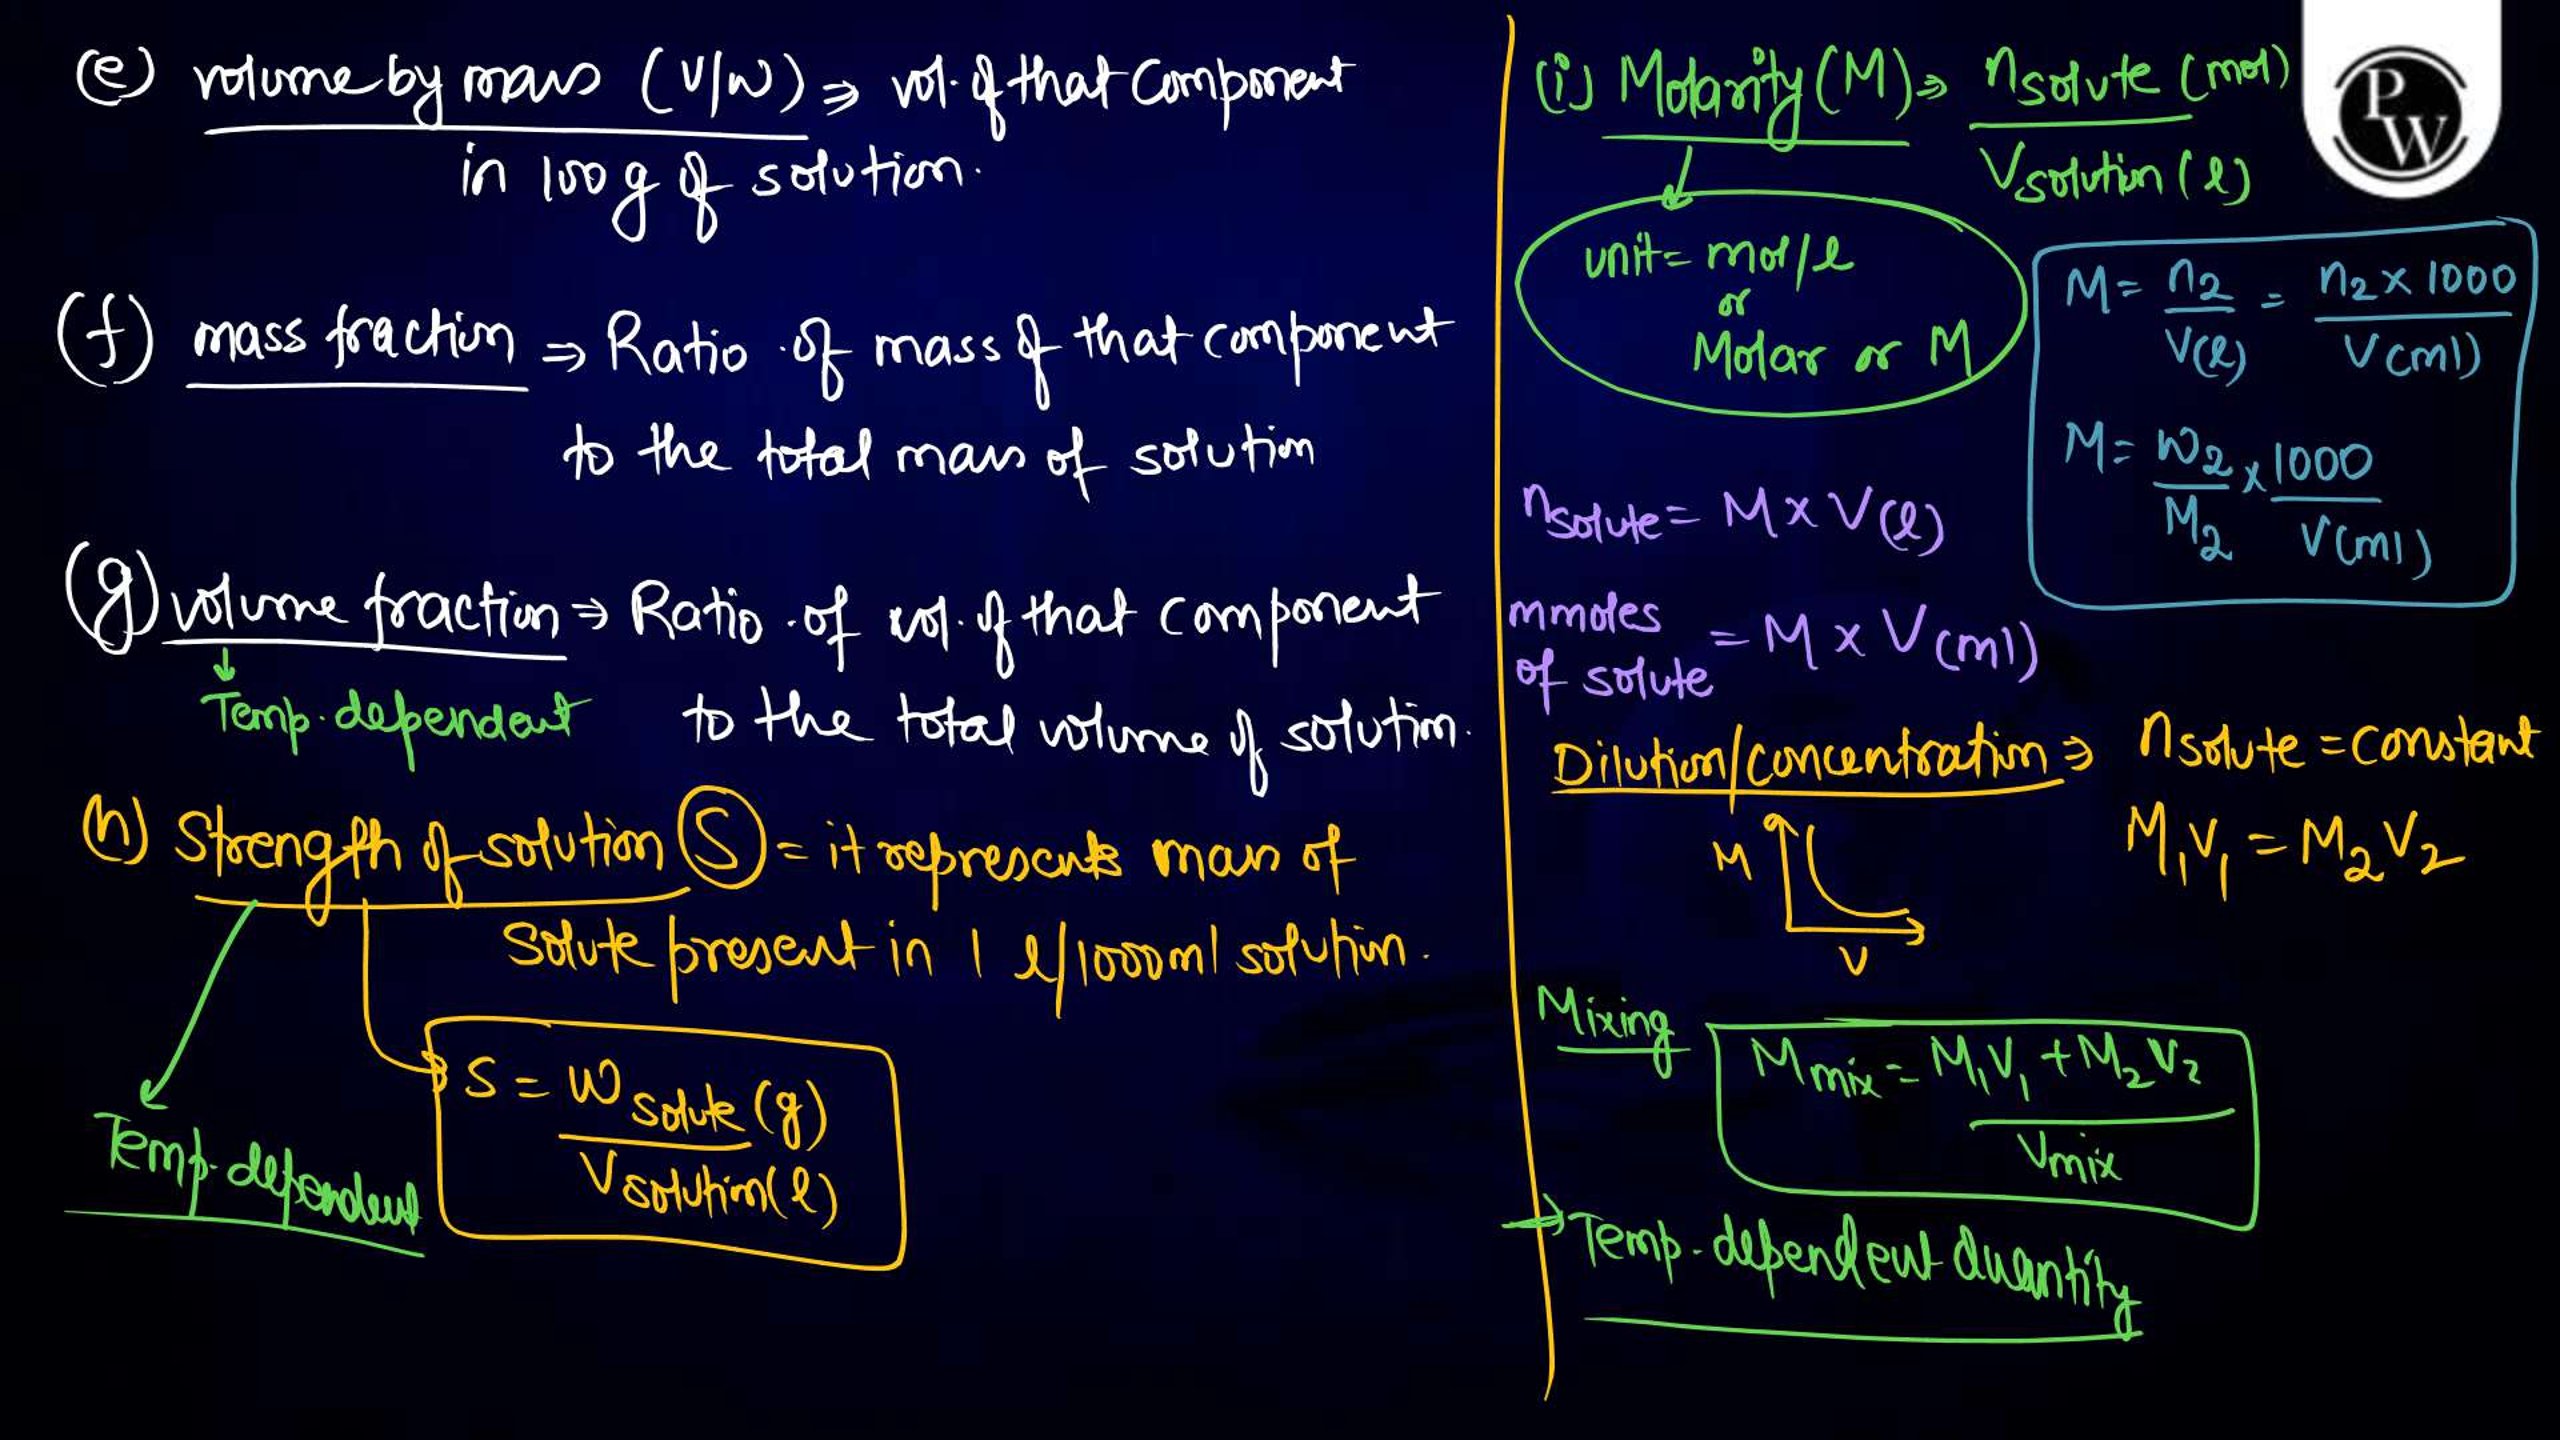 (e) volume by mass (V/W) ⇒ vol. of that component
in 100 g of solution.
(f) mass fraction ⇒ Ratio of mass of that component
to the total mass of solution
(g) volume fraction ⇒ Ratio of vol. of that component
↓
Temp. dependent
to the total volume of solution.
(h) Strength of solution (S) = it represents mass of
solute present in 1 l/1000ml solution.
S = W solute (g)
V solution (l)
Temp. dependent
(i) Molarity (M) ⇒ n solute (mol)
V solution (l)
unit = mol/l
or
Molar or M
M = n2 / V(l) = n2 × 1000 / V(ml)
M = W2 / M2 × 1000 / V(ml)
n solute = M × V(l)
mmoles of solute = M × V(ml)
Dilution/concentration ⇒ n solute = constant
M1V1 = M2V2
M
V
Mixing
M mix = M1V1 + M2V2
V mix
→ Temp. dependent quantity
PW